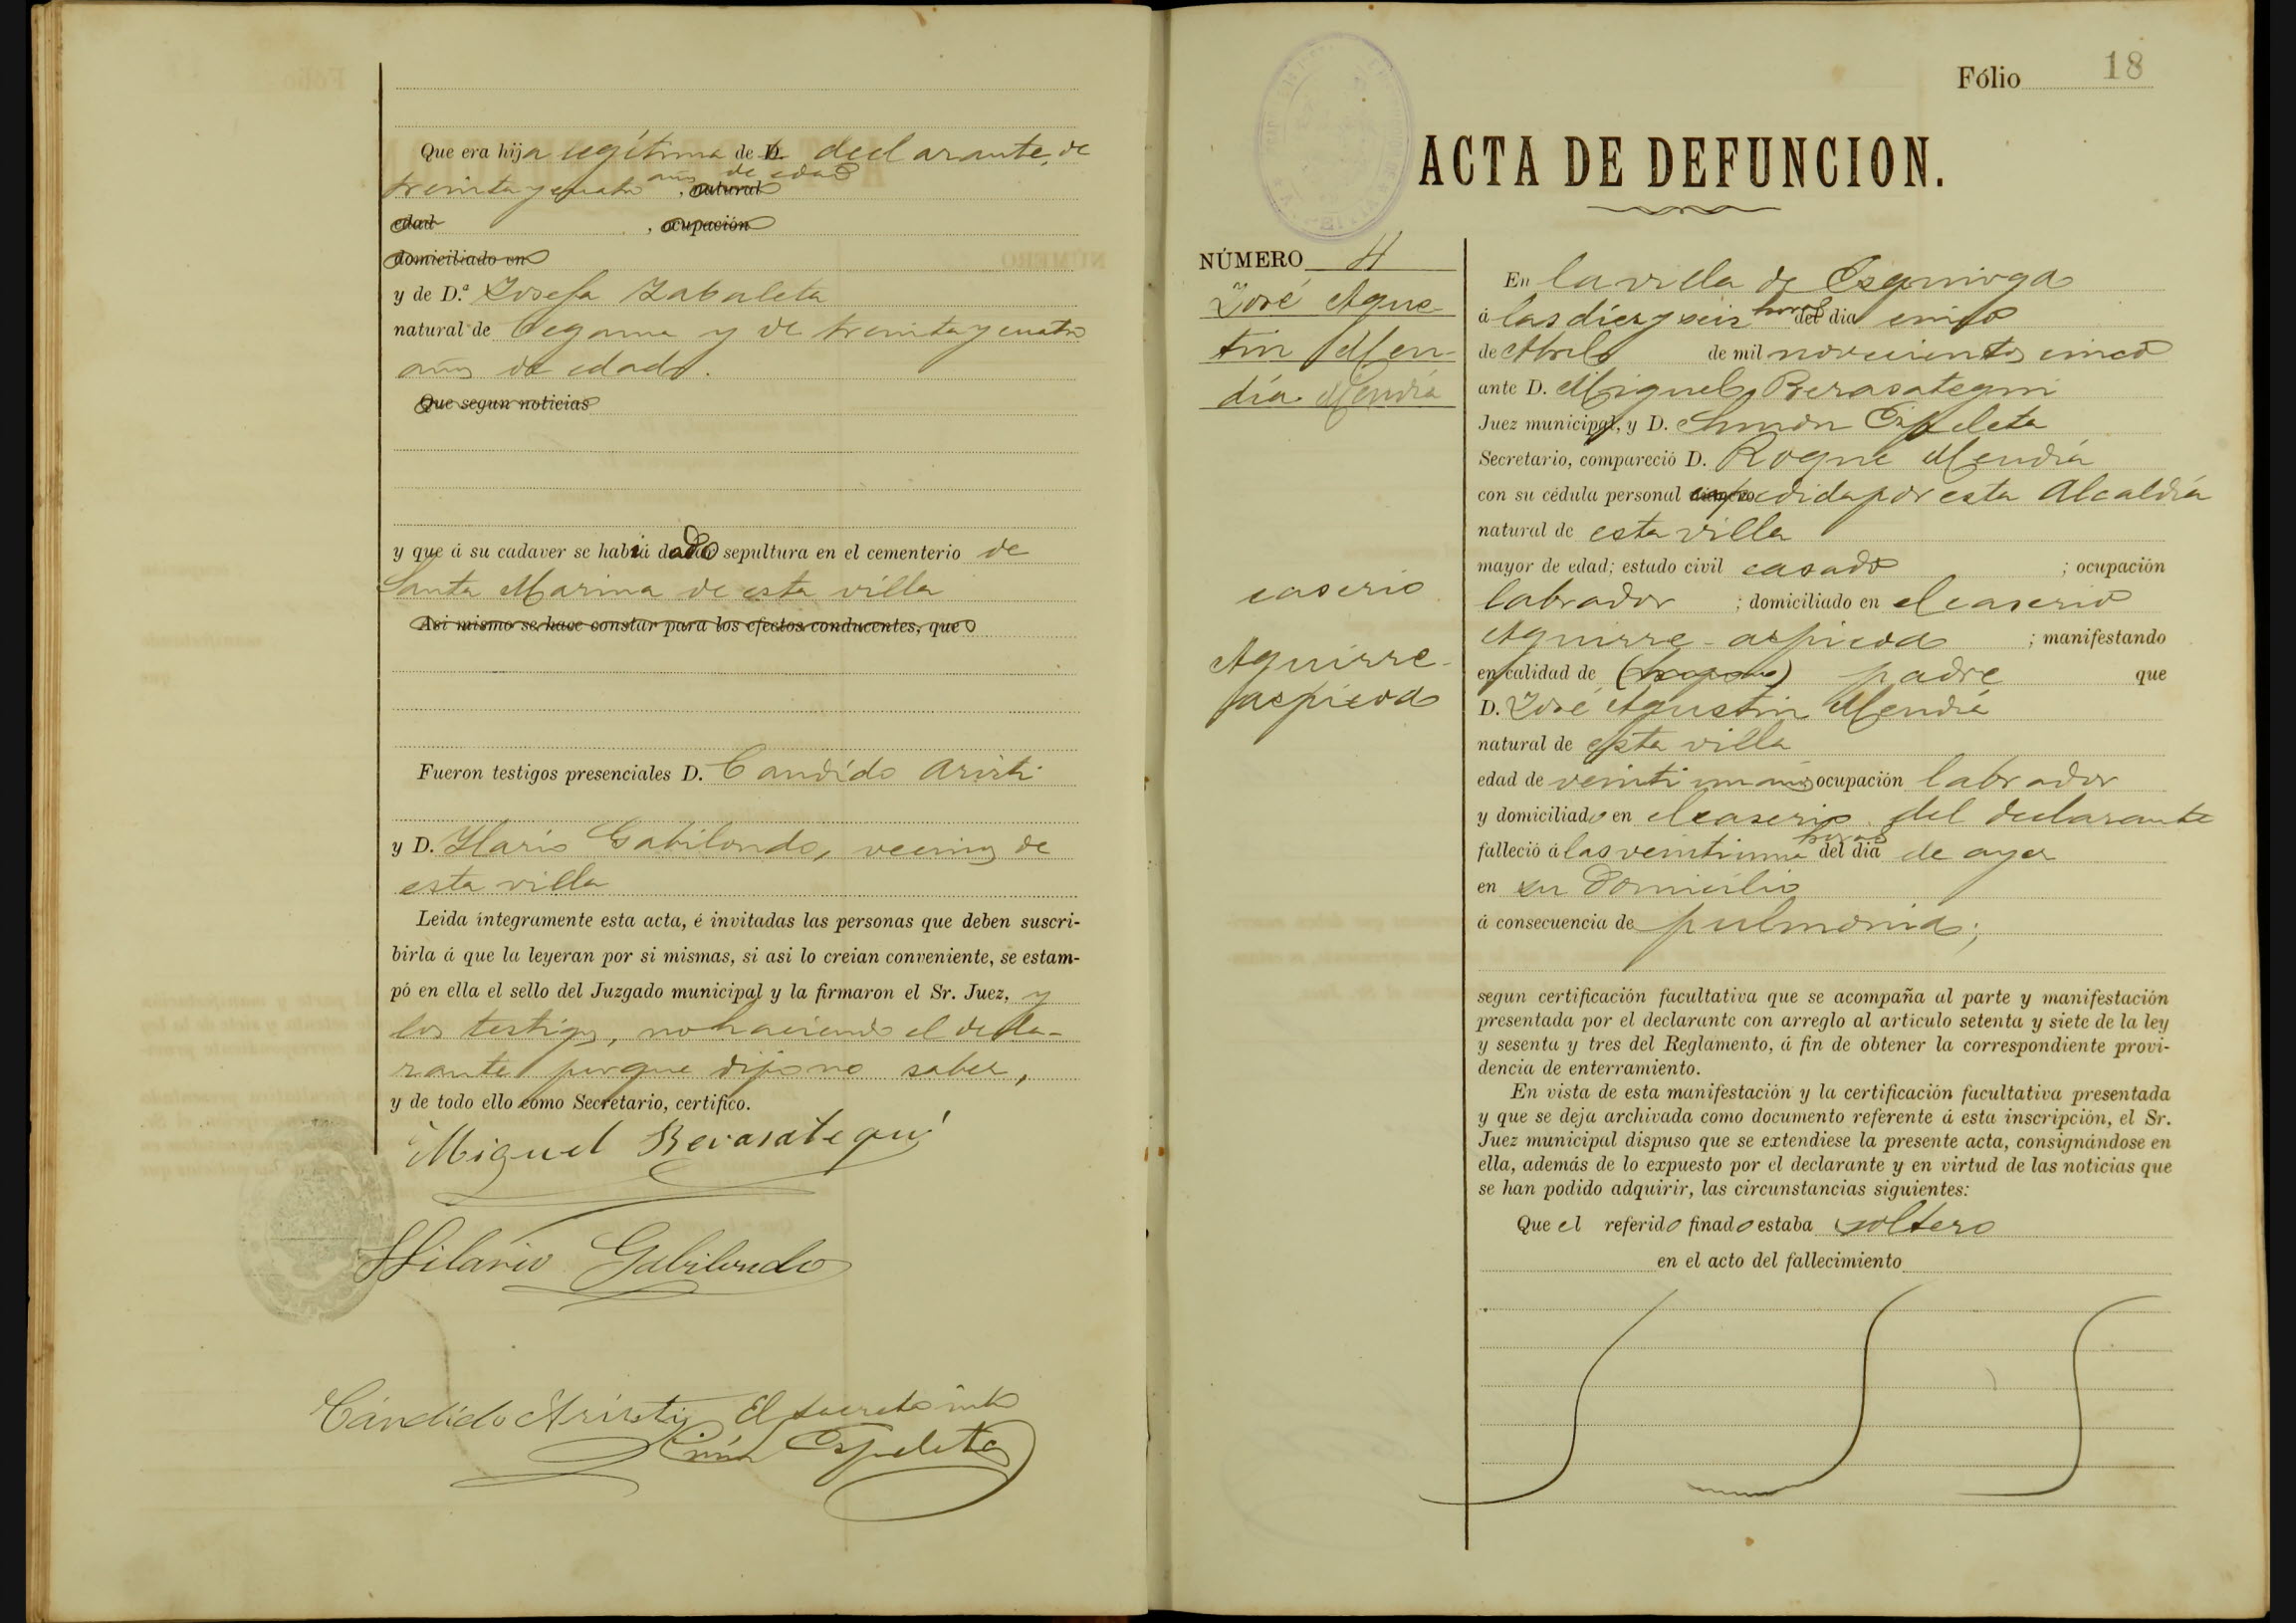 Que era hija legítima de D. declarante, de
treinta y cuatro años de edad, natural
edad , ocupación
domiciliado en
y de D.ª Josefa Zabaleta
natural de Cegama y de treinta y cuatro
años de edad.
Que segun noticias
y que á su cadaver se había dado sepultura en el cementerio de
Santa Marina de esta villa
Asi mismo se hace constar para los efectos conducentes, que
Fueron testigos presenciales D. Candído Aristi
y D. Ylario Gabilondo, vecinos de
esta villa
Leida íntegramente esta acta, é invitadas las personas que deben suscri-
birla á que la leyeran por si mismas, si asi lo creian conveniente, se estam-
pó en ella el sello del Juzgado municipal y la firmaron el Sr. Juez, y
los testigos, no haciendo el decla-
rante porque dijo no saber,
y de todo ello como Secretario, certifico.
Miguel Berasategui
Hilario Gabilondo
Cándido Aristi El secretario
Simón Ezpeleta
Fólio 18
ACTA DE DEFUNCION.
NÚMERO 4
José Agus-
tin Men-
día Mendía
caserio
Aguirre-
aspicoa
En la villa de Ezquioga
á las diez y seis horas del dia cinco
de Abril de mil novecientos cinco
ante D. Miguel Berasategui
Juez municipal, y D. Simón Ezpeleta
Secretario, compareció D. Roque Mendía
con su cédula personal expedida por esta Alcaldía
natural de esta villa
mayor de edad; estado civil casado ; ocupación
labrador ; domiciliado en el caserio
Aguirre-aspicoa ; manifestando
en calidad de padre que
D. José Agustin Mendía
natural de esta villa
edad de veintiun años ocupación labrador
y domiciliado en el caserio del declarante
falleció á las veintiuna horas del dia de ayer
en su domicilio
á consecuencia de pulmonia;
segun certificación facultativa que se acompaña al parte y manifestación
presentada por el declarante con arreglo al artículo setenta y siete de la ley
y sesenta y tres del Reglamento, á fin de obtener la correspondiente provi-
dencia de enterramiento.
En vista de esta manifestación y la certificación facultativa presentada
y que se deja archivada como documento referente á esta inscripción, el Sr.
Juez municipal dispuso que se extendiese la presente acta, consignándose en
ella, además de lo expuesto por el declarante y en virtud de las noticias que
se han podido adquirir, las circunstancias siguientes:
Que el referido finado estaba soltero
en el acto del fallecimiento